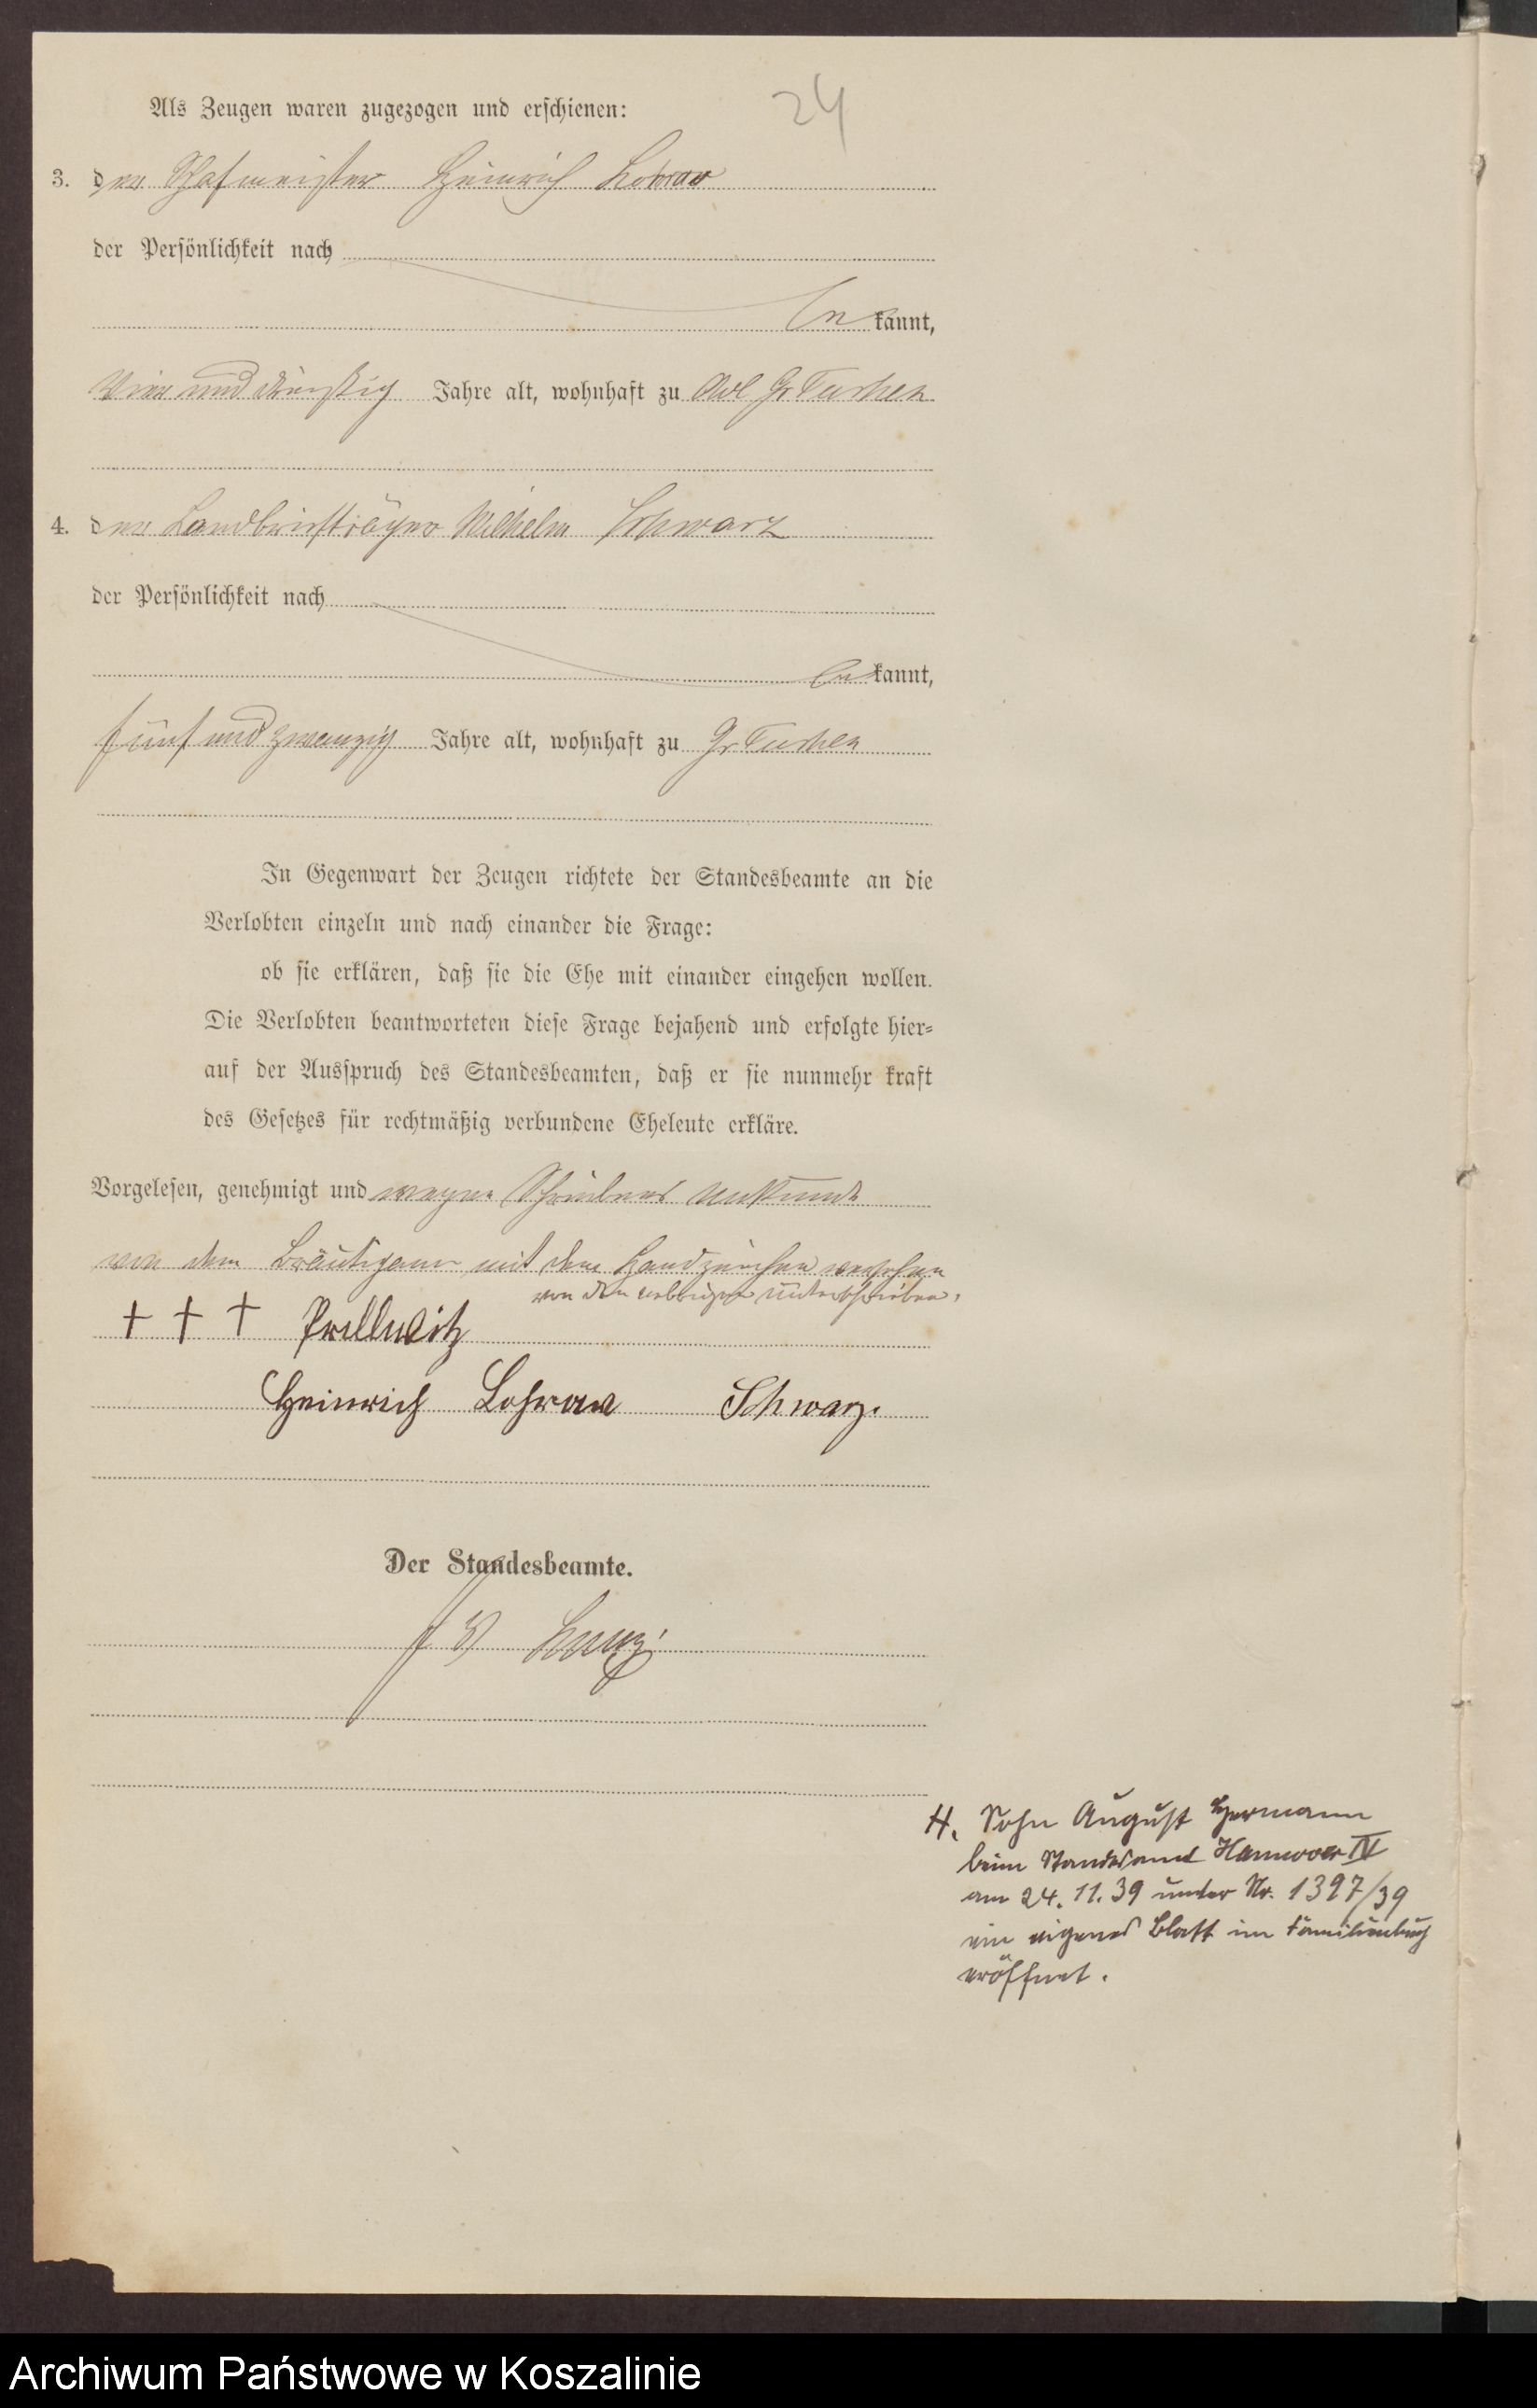 24
Als Zeugen waren zugezogen und erschienen:
3. der Schafmeister Heinrich Lohraw
der Persönlichkeit nach
bekannt,
Vier und dreißig Jahre alt, wohnhaft zu Adl Gr Tuchen
4. der Landbriefträger Wilhelm Schwarz
der Persönlichkeit nach
bekannt,
fünf und zwanzig Jahre alt, wohnhaft zu Gr Tuchen
In Gegenwart der Zeugen richtete der Standesbeamte an die
Verlobten einzeln und nach einander die Frage:
ob sie erklären, daß sie die Ehe mit einander eingehen wollen.
Die Verlobten beantworteten diese Frage bejahend und erfolgte hier=
auf der Ausspruch des Standesbeamten, daß er sie nunmehr kraft
des Gesetzes für rechtmäßig verbundene Eheleute erkläre.
Vorgelesen, genehmigt und wegen Schreibens Unkunde
von dem Bräutigam mit dem Handzeichen versehen
von den uebrigen unterschrieben.
+ + + Prellwitz
Heinrich Lohraw Schwarz.
Der Standesbeamte.
H. Sohn August Hermann
beim Standesamt Hannover IV
am 24.11.39 unter Nr. 1397/39
ein eigenes Blatt im Familienbuch
eröffnet.
Archiwum Państwowe w Koszalinie